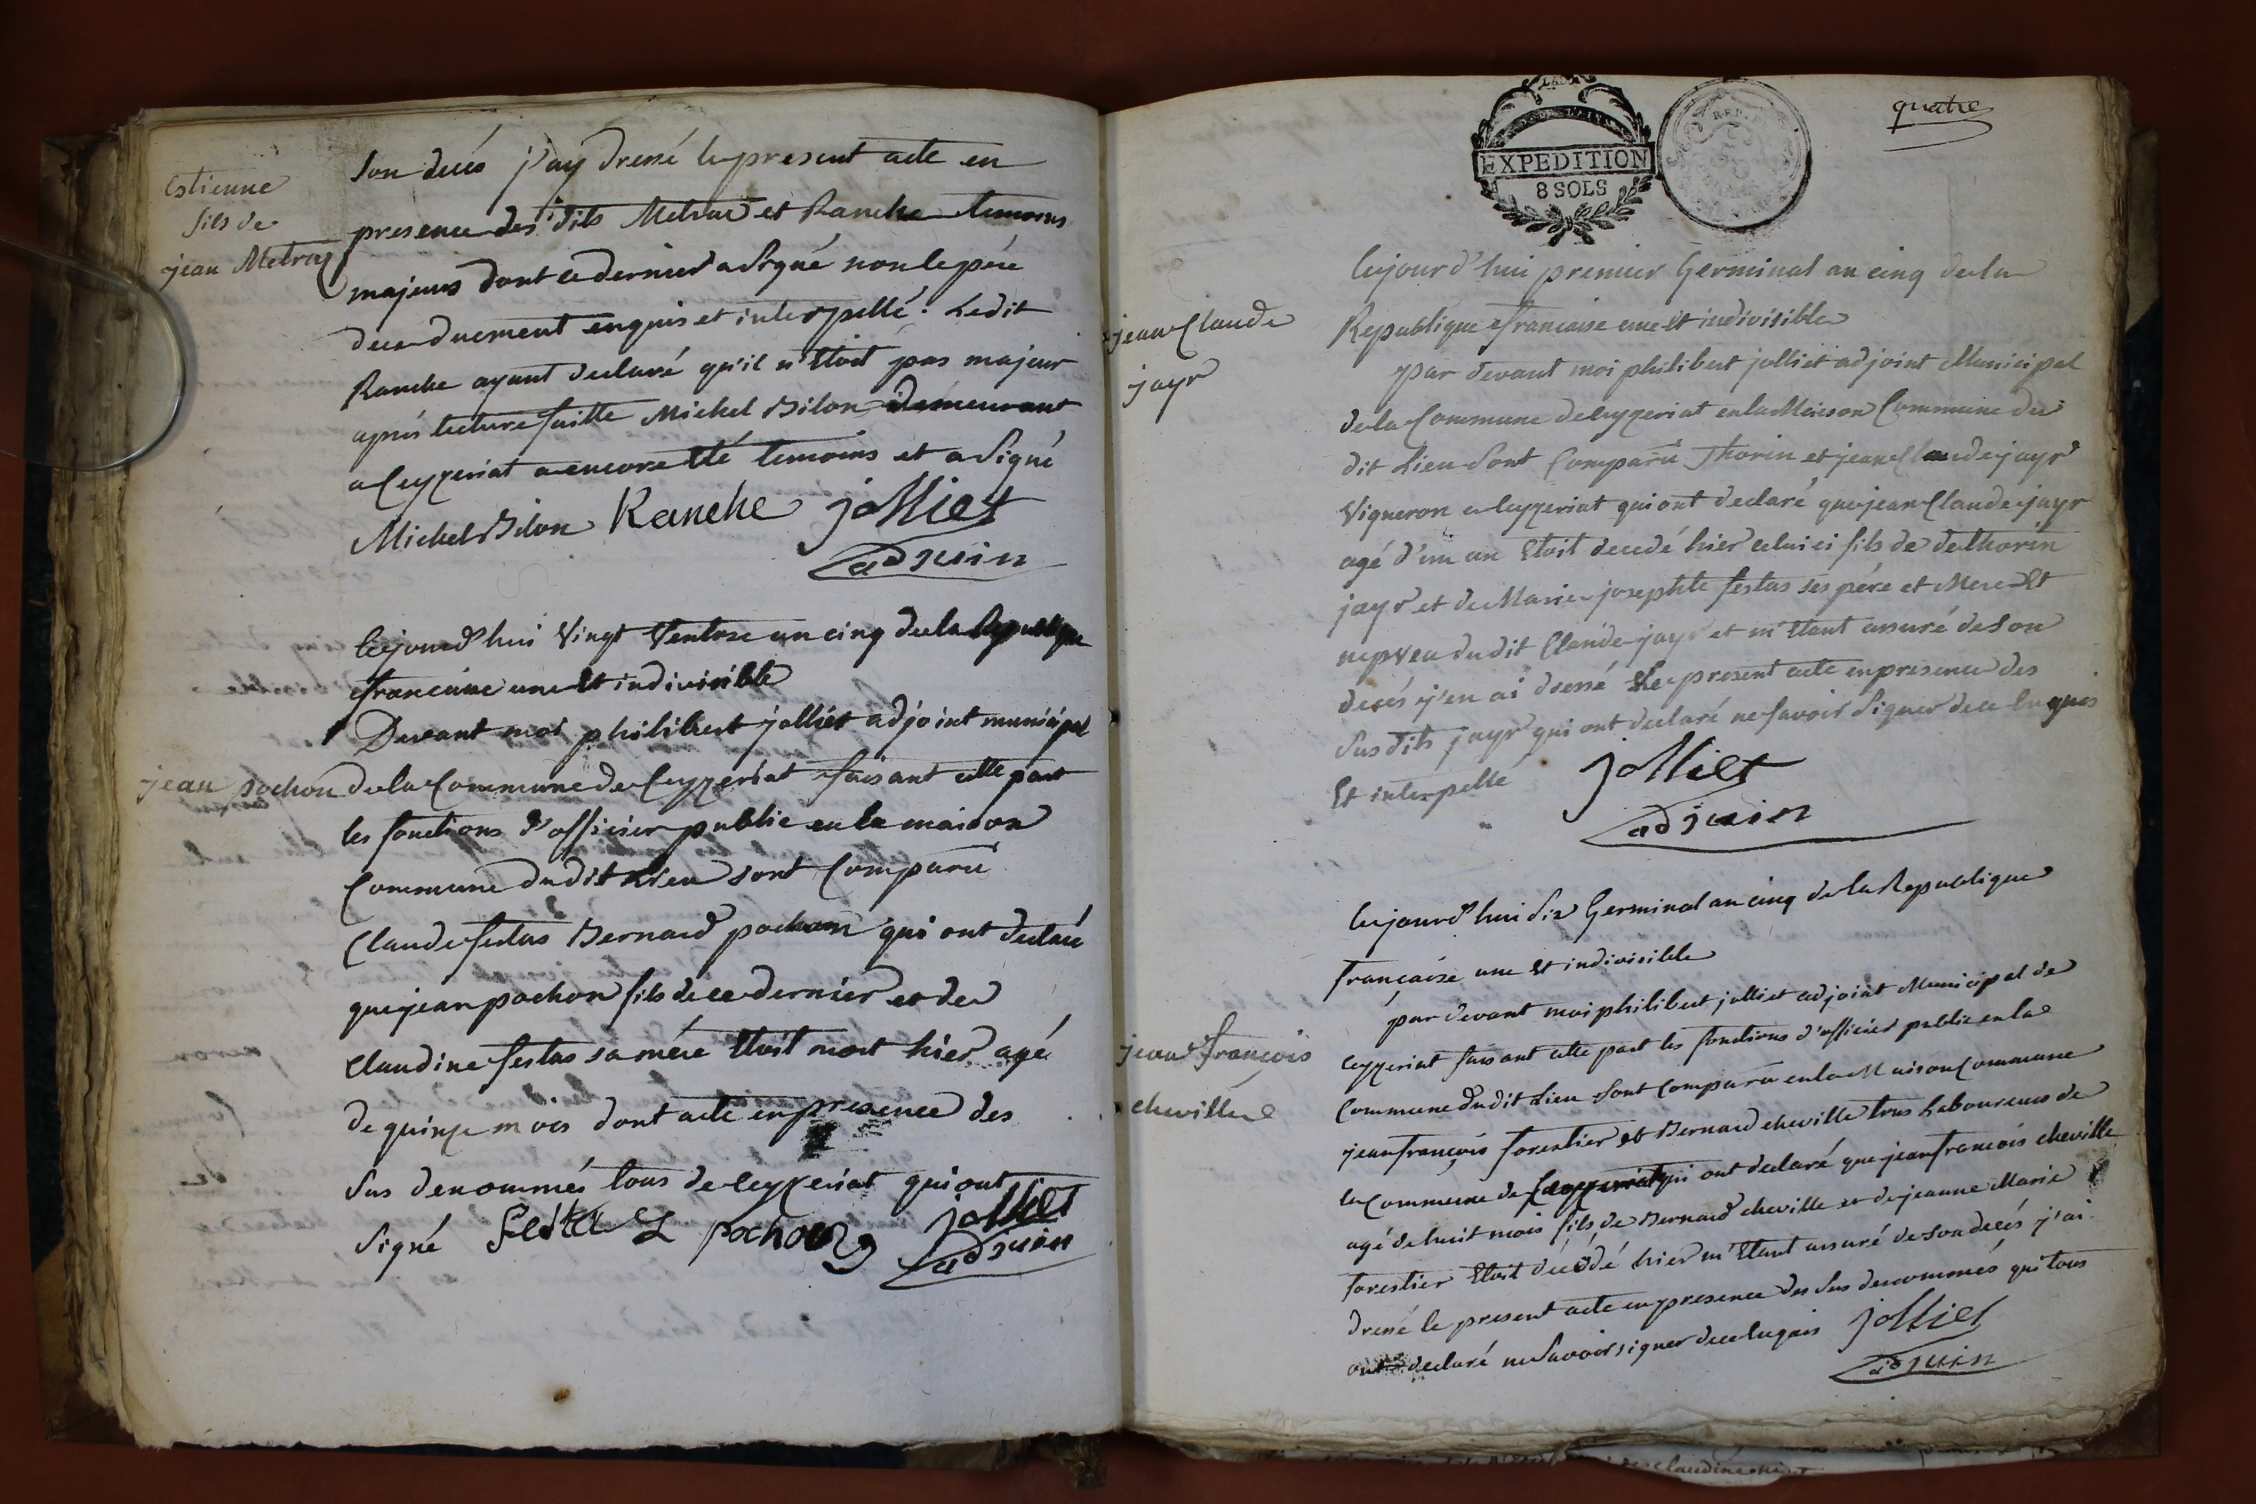 Estienne
fils de
jean Metras
son decés j'ay dressé le present acte en
presence des dits Metras et Ranche temoins
majeurs dont ce dernier a signé non le pére
de ce duement enquis et interpellé. Ledit
Ranche ayant declaré qu'il n'etoit pas majeur
aprés lecture faitte Michel Bilon demeurant
a Ceyzeriat a encore eté temoins et a signé
Michel Bilon Ranche jolliet
adjoin
Cejourd'hui vingt ventose an cinq de la Republique
francaise une et indivisible
Devant moi philibert jolliet adjoint municipal
jean pochon
de la Commune de Ceyzeriat faisant cette part
les fonctions d'officier public en la maison
Commune dudit Lieu sont Comparu
Claude festas Bernard pochon qui ont declaré
que jean pochon fils de ce dernier et de
Claudine festas sa mére etoit mort hier agé
de quinze mois dont acte en presence des
sus denommés tous de ceyzeriat qui ont
signé festas pochon jolliet
adjoin
EXPEDITION
8 SOLS
REP.
quatre
Cejourd'hui premier Germinal an cinq de la
Republique francaise une et indivisible
jean Claude
jayr
par devant moi philibert jolliet adjoint Municipal
de la Commune de ceyzeriat en la Maison Commune du
dit Lieu sont Comparu Thorin et jean Claude jayr
Vigneron a ceyzeriat qui ont declaré que jean Claude jayr
agé d'un an etoit decedé hier celui ci fils de de thorin
jayr et de Marie josephte festas ses pére et Mere et
nepveu du dit Claude jayr et m'etant assuré de son
decés j'en ai dressé le present acte en presence des
sus dits jayr qui ont declaré ne savoir signer de ce enquis
et interpellé jolliet
adjoin
Cejourd'hui dix Germinal an cinq de la Republique
française une et indivisible
par devant moi philibert jolliet adjoint Municipal de
jean françois
cheville
ceyzeriat faisant cette part les fonctions d'officier public en la
Commune dudit Lieu sont comparu en la Maison Commune
jean françois forestier et Bernard cheville tous Laboureurs de
la Commune de Ceyzeriat qui ont declaré que jean francois cheville
agé de huit mois fils de Bernard cheville et de jeanne Marie
forestier etoit décédé hier m'etant assuré de son decés j'ai
dressé le present acte en presence des sus denommés qui tous
ont declaré ne savoir signer de ce enquis jolliet
adjoin